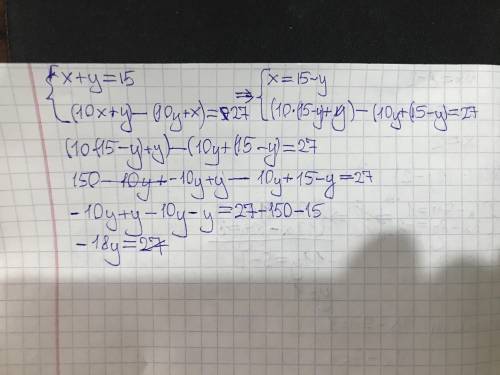 { x+y=15 ⇒ { x=15-y
(10x+y)-(10y+x)=27 (10·(15-y)+y)-(10y+(15-y)=27
(10·(15-y)+y)-(10y+(15-y)=27
150-10y+y-10y+15-y=27
-10y+y-10y-y=27-150-15
-18y=27